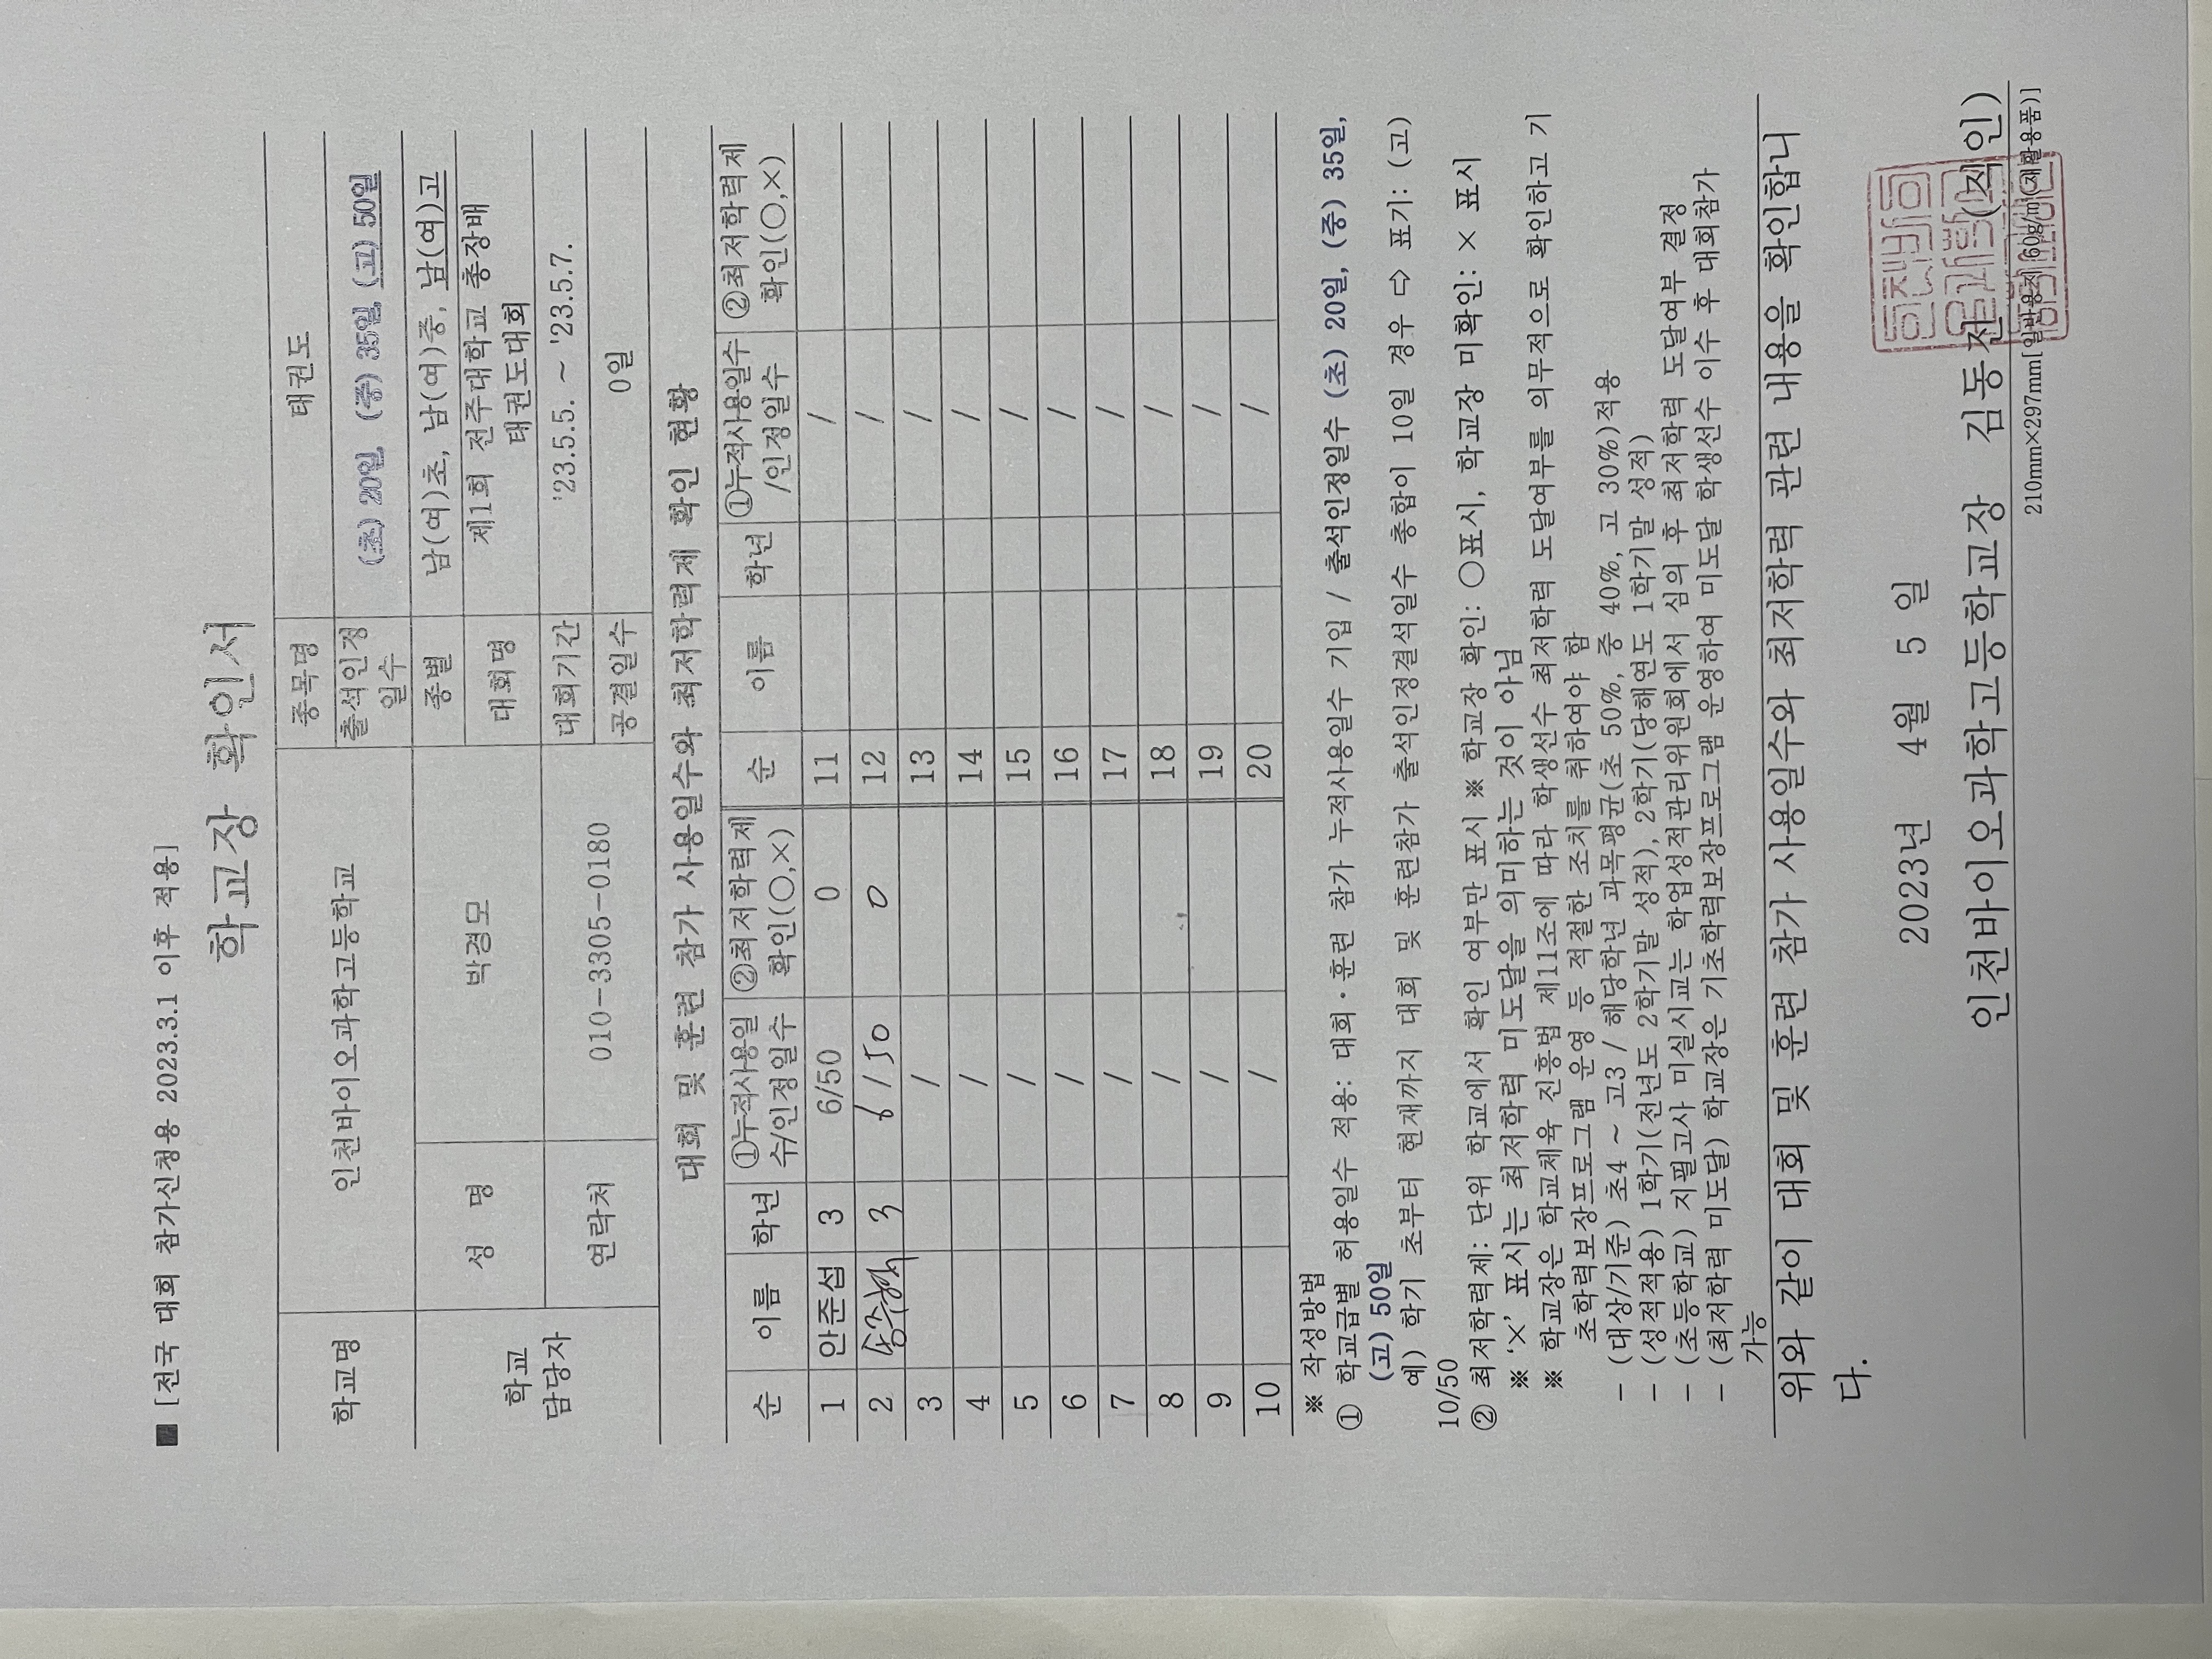 ■ [전국 대회 참가신청용 2023.3.1 이후 적용]
학교장 확인서
학교명 인천바이오과학고등학교 종목명 태권도
출석인정일수 (초) 20일, (중) 35일, (고) 50일
학교 담당자 성 명 박경모 종별 남(여)초, 남(여)중, 남(여)고
대회명 제1회 전주대학교 총장배 태권도대회
연락처 010-3305-0180 대회기간 '23.5.5. ~ '23.5.7.
공결일수 0일
대회 및 훈련 참가 사용일수와 최저학력제 확인 현황
순 이름 학년 ①누적사용일수/인정일수 ②최저학력제 확인(○,×) 순 이름 학년 ①누적사용일수/인정일수 ②최저학력제 확인(○,×)
1 안준섭 3 6/50 0 11 /
2 3 6/50 0 12 /
3 / 13 /
4 / 14 /
5 / 15 /
6 / 16 /
7 / 17 /
8 / 18 /
9 / 19 /
10 / 20 /
※ 작성방법
① 학교급별 허용일수 적용: 대회·훈련 참가 누적사용일수 기입 / 출석인정일수 (초) 20일, (중) 35일,
(고) 50일
예) 학기 초부터 현재까지 대회 및 훈련참가 출석인정결석일수 총합이 10일 경우 ⇨ 표기: (고)
10/50
② 최저학력제: 단위 학교에서 확인 여부만 표시 ※ 학교장 확인: ○표시, 학교장 미확인: × 표시
※ '×' 표시는 최저학력 미도달을 의미하는 것이 아님
※ 학교장은 학교체육 진흥법 제11조에 따라 학생선수 최저학력 도달여부를 의무적으로 확인하고 기
초학력보장프로그램 운영 등 적절한 조치를 취하여야 함
- (대상/기준) 초4 ~ 고3 / 해당학년 과목평균(초 50%, 중 40%, 고 30%)적용
- (성적적용) 1학기(전년도 2학기말 성적), 2학기(당해연도 1학기말 성적)
- (초등학교) 지필고사 미실시교는 학업성적관리위원회에서 심의 후 최저학력 도달여부 결정
- (최저학력 미도달) 학교장은 기초학력보장프로그램 운영하여 미도달 학생선수 이수 후 대회참가
가능
위와 같이 대회 및 훈련 참가 사용일수와 최저학력 관련 내용을 확인합니
다.
2023년 4월 5일
인천바이오과학고등학교장 김동전 (직인)
210mm×297mm[일반용지 60g/㎡(재활용품)]